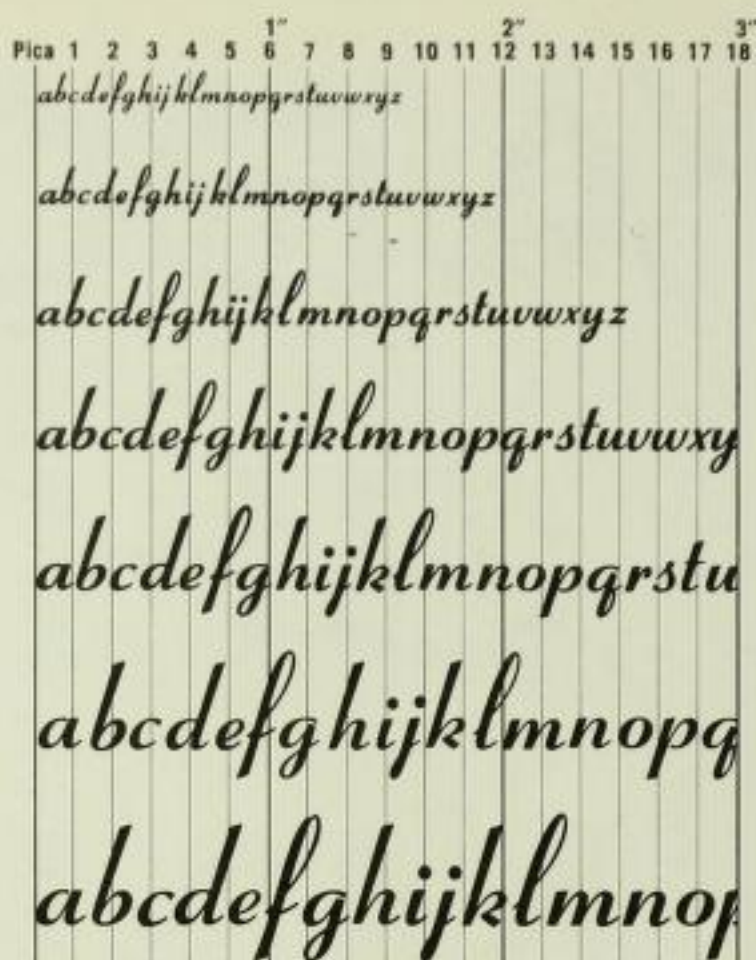 1" 2" 3"
Pica 1 2 3 4 5 6 7 8 9 10 11 12 13 14 15 16 17 18
abcdefghijklmnopqrstuvwxyz
abcdefghijklmnopqrstuvwxyz
abcdefghijklmnopqrstuvwxyz
abcdefghijklmnopqrstuvwxy
abcdefghijklmnopqrstu
abcdefghijklmnopq
abcdefghijklmnop